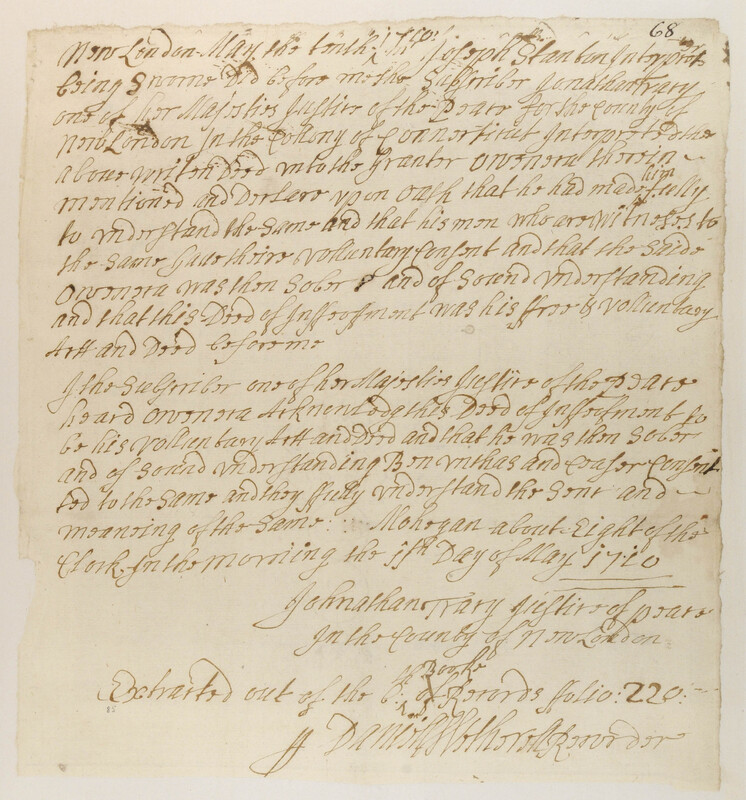 68
New London May the tenth: 1710: Joseph Stanton Interpreter
being Sworne Did before me the Subscriber Jonathan Tracy
one of her Majesties Justice of the Peace for the County of
New London In the Collony of Connecticut Interpreted the
above written Deed unto the Granter Oweneca therein
mentioned and Declare upon Oath that he had made him fully
to understand the Same and that his men who are Witnesses to
the Same Gave theire Volluntary Consent and that the Saide
Oweneca was then Sober & and of Sound understanding
and that this Deed of Infeoffment was his ffree & Volluntary
Act and Deed before me
I the Subscriber one of her Majesties Justice of the Peace
heard Oweneca Acknowledg this Deed of Infeofment to
be his Volluntary Act and Deed and that he was then Sober
and of Sound understanding Ben Unthas and Ceaser Consen
ted to the Same and they ffully understand the Sent and
meaneing of the Same: Mohegan about Eight of the
Clock In the morning the 11th Day of May 1710
Johnathan Tracy Justice of peace
In the County of New London
Extracted out of the 6: Booke of Records ffolio: 220:
Daniell Wetherell Recorder